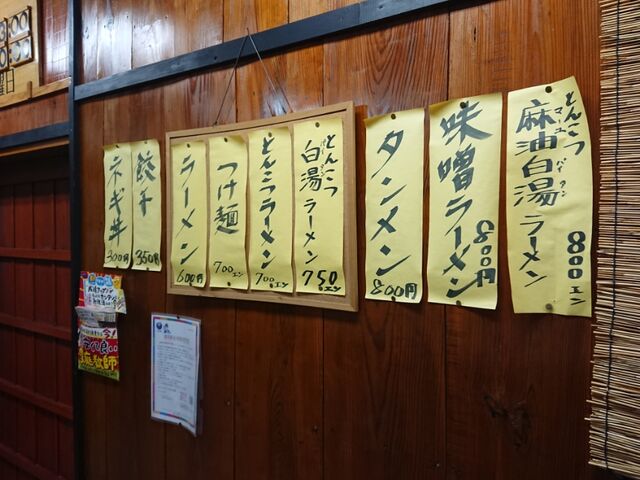 とんこつ
麻油白湯ラーメン
マーユ パイタン
800エン
味噌ラーメン
800円
タンメン
800円
とんこつ
白湯ラーメン
パイタン
750エン
とんこつラーメン
700エン
つけ麺
700円
ラーメン
600円
餃子
350円
ネギ丼
300円
家庭教師